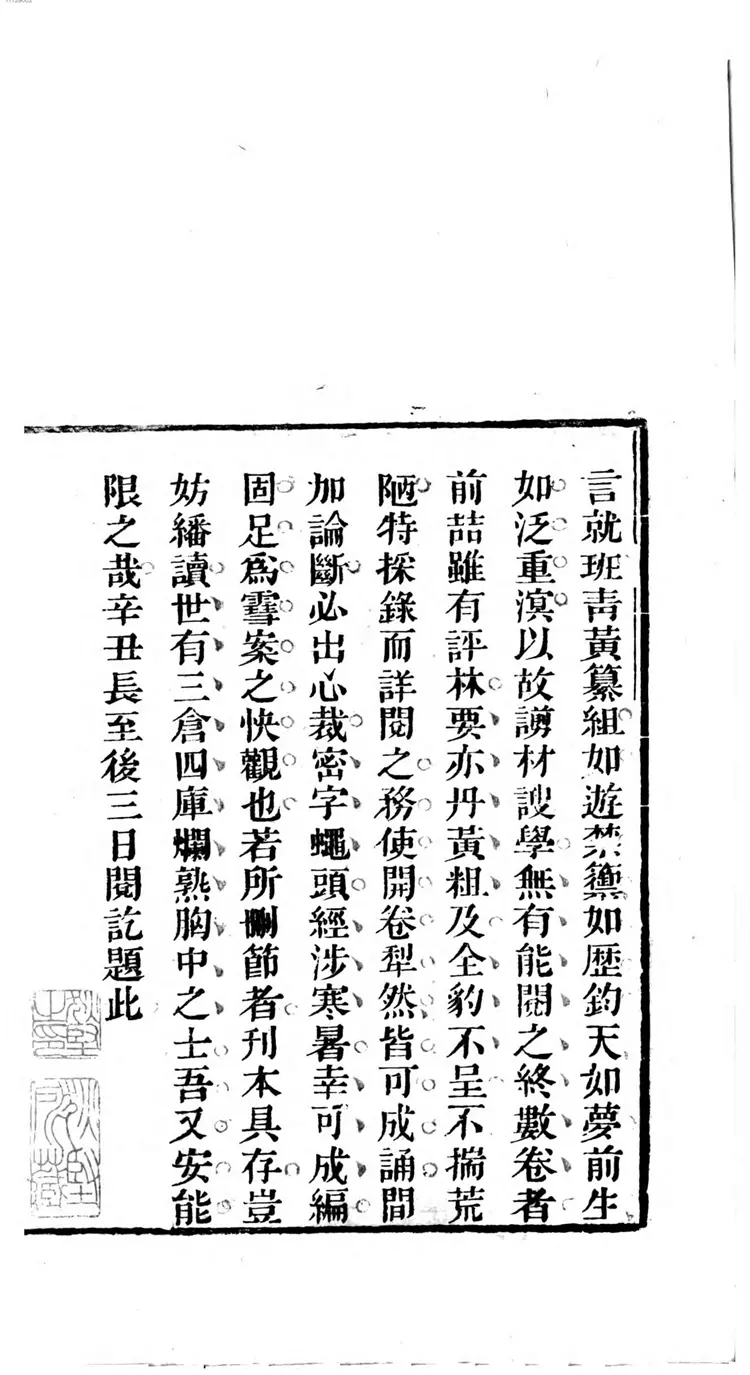 言就班靑黃纂組如遊禁籞如歷鈞天如夢前生
如泛重溟以故謭材謏學無有能閱之終數卷者
前喆雖有評林要亦丹黃粗及全豹不呈不揣荒
陋特採錄而詳閱之務使開卷犁然皆可成誦間
加論斷必出心裁密字蠅頭經涉寒暑幸可成編
固足爲雪案之快觀也若所刪節者刊本具存豈
妨繙讀世有三倉四庫爛熟胸中之士吾又安能
限之哉辛丑長至後三日閱訖題此